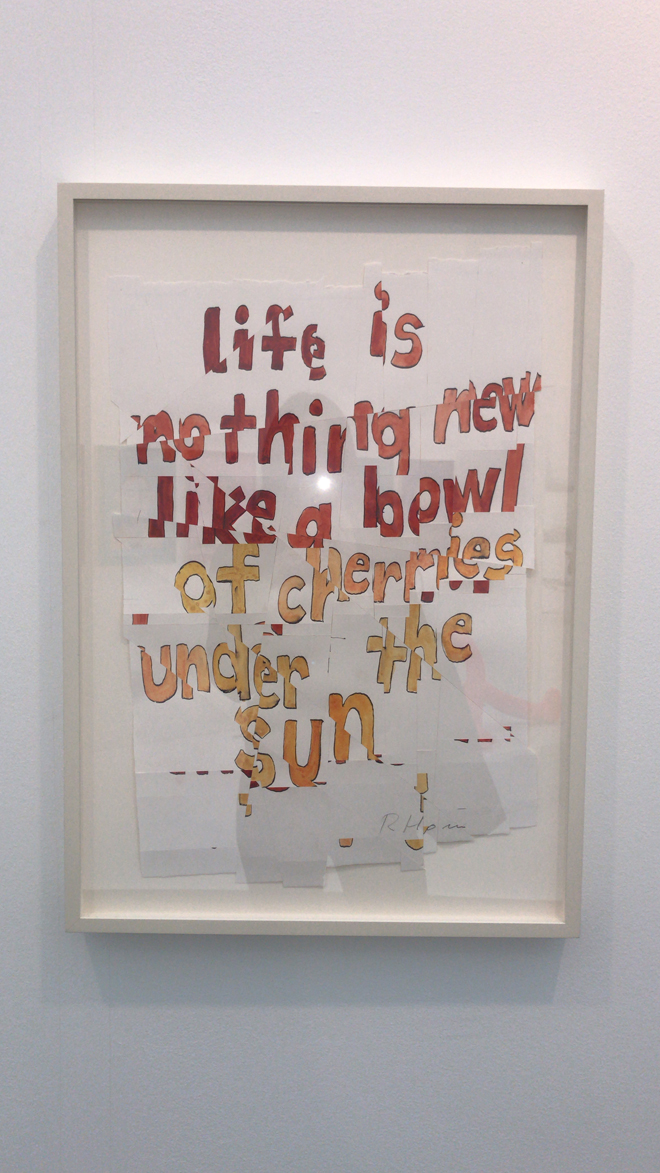 life is
nothing new
like a bowl
of cherries
under the
sun